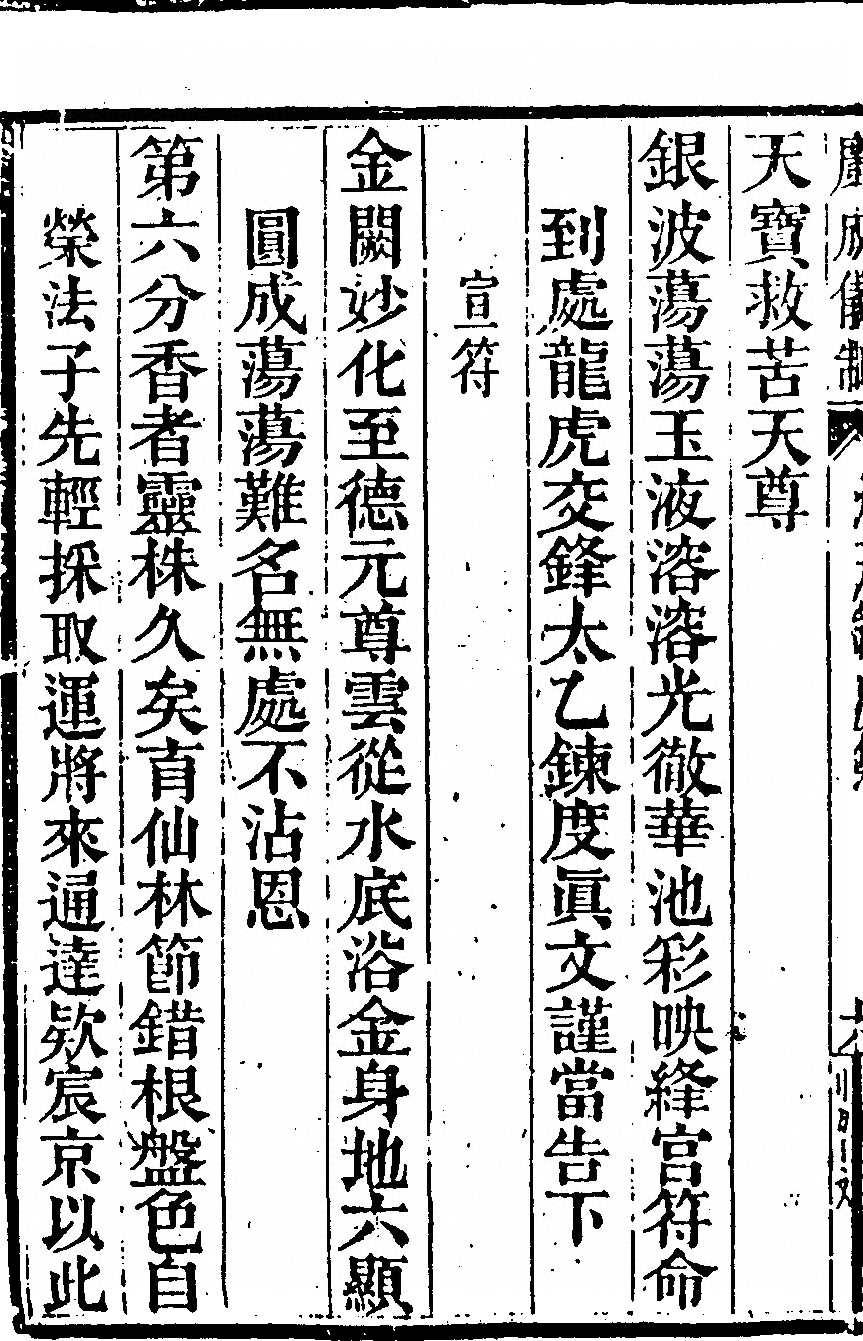 廣成儀制
天寶救苦天尊
銀波蕩蕩玉液溶溶光徹華池彩映絳宮符命
到處龍虎交鋒太乙鍊度眞文謹當告下
宣符
金闕妙化至德元尊雲從水底浴金身地六顯
圓成蕩蕩難名無處不沾恩
第六分香者靈株久矣育仙林節錯根盤色自
榮法子先輕採取運將來通達欵宸京以此